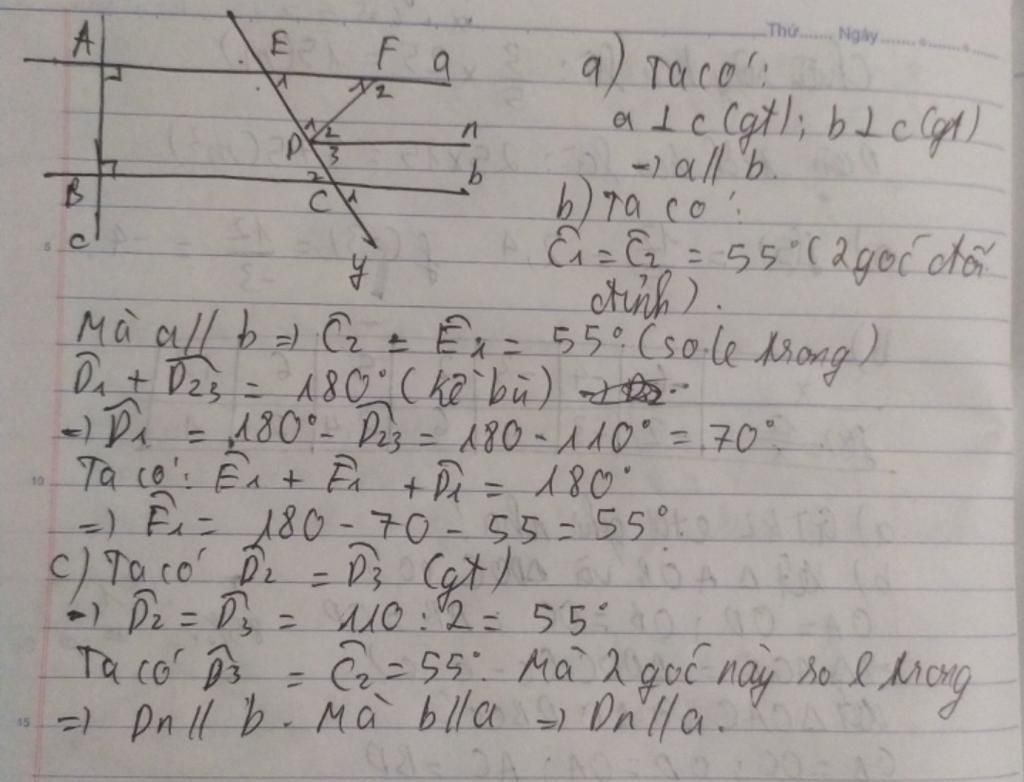 Thứ........ Ngày........
A
E
F
a
1
1
2
1
2
D
3
n
B
2
C
1
b
c
y
a) Ta có:
a ⊥ c (gt); b ⊥ c (gt)
=) a // b.
b) Ta có:
Ĉ1 = Ĉ2 = 55° (2 góc đối
đỉnh).
Mà a // b => Ĉ2 = Ê1 = 55° (so le trong)
D̂1 + D̂23 = 180° (kề bù)
=) D̂1 = 180° - D̂23 = 180 - 110° = 70°
Ta có: Ê1 + F̂1 + D̂1 = 180°
=) F̂1 = 180 - 70 - 55 = 55°
c) Ta có D̂2 = D̂3 (gt)
=) D̂2 = D̂3 = 110 : 2 = 55°
Ta có D̂3 = Ĉ2 = 55°. Mà 2 góc này so l trong
=) Dn // b. Mà b // a =) Dn // a.